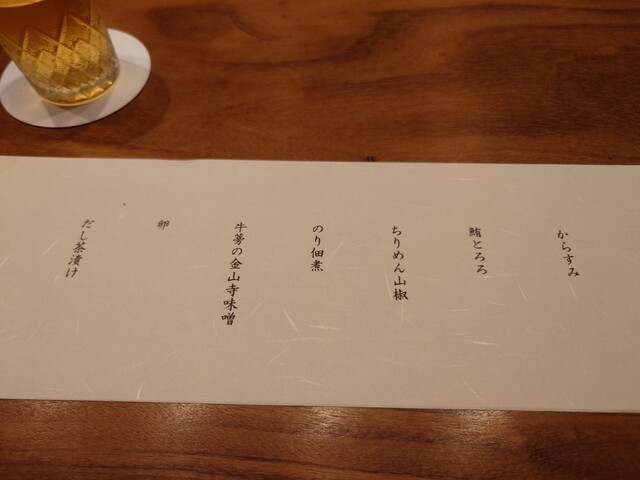 からすみ
鮪とろろ
ちりめん山椒
のり佃煮
牛蒡の金山寺味噌
卵
だし茶漬け